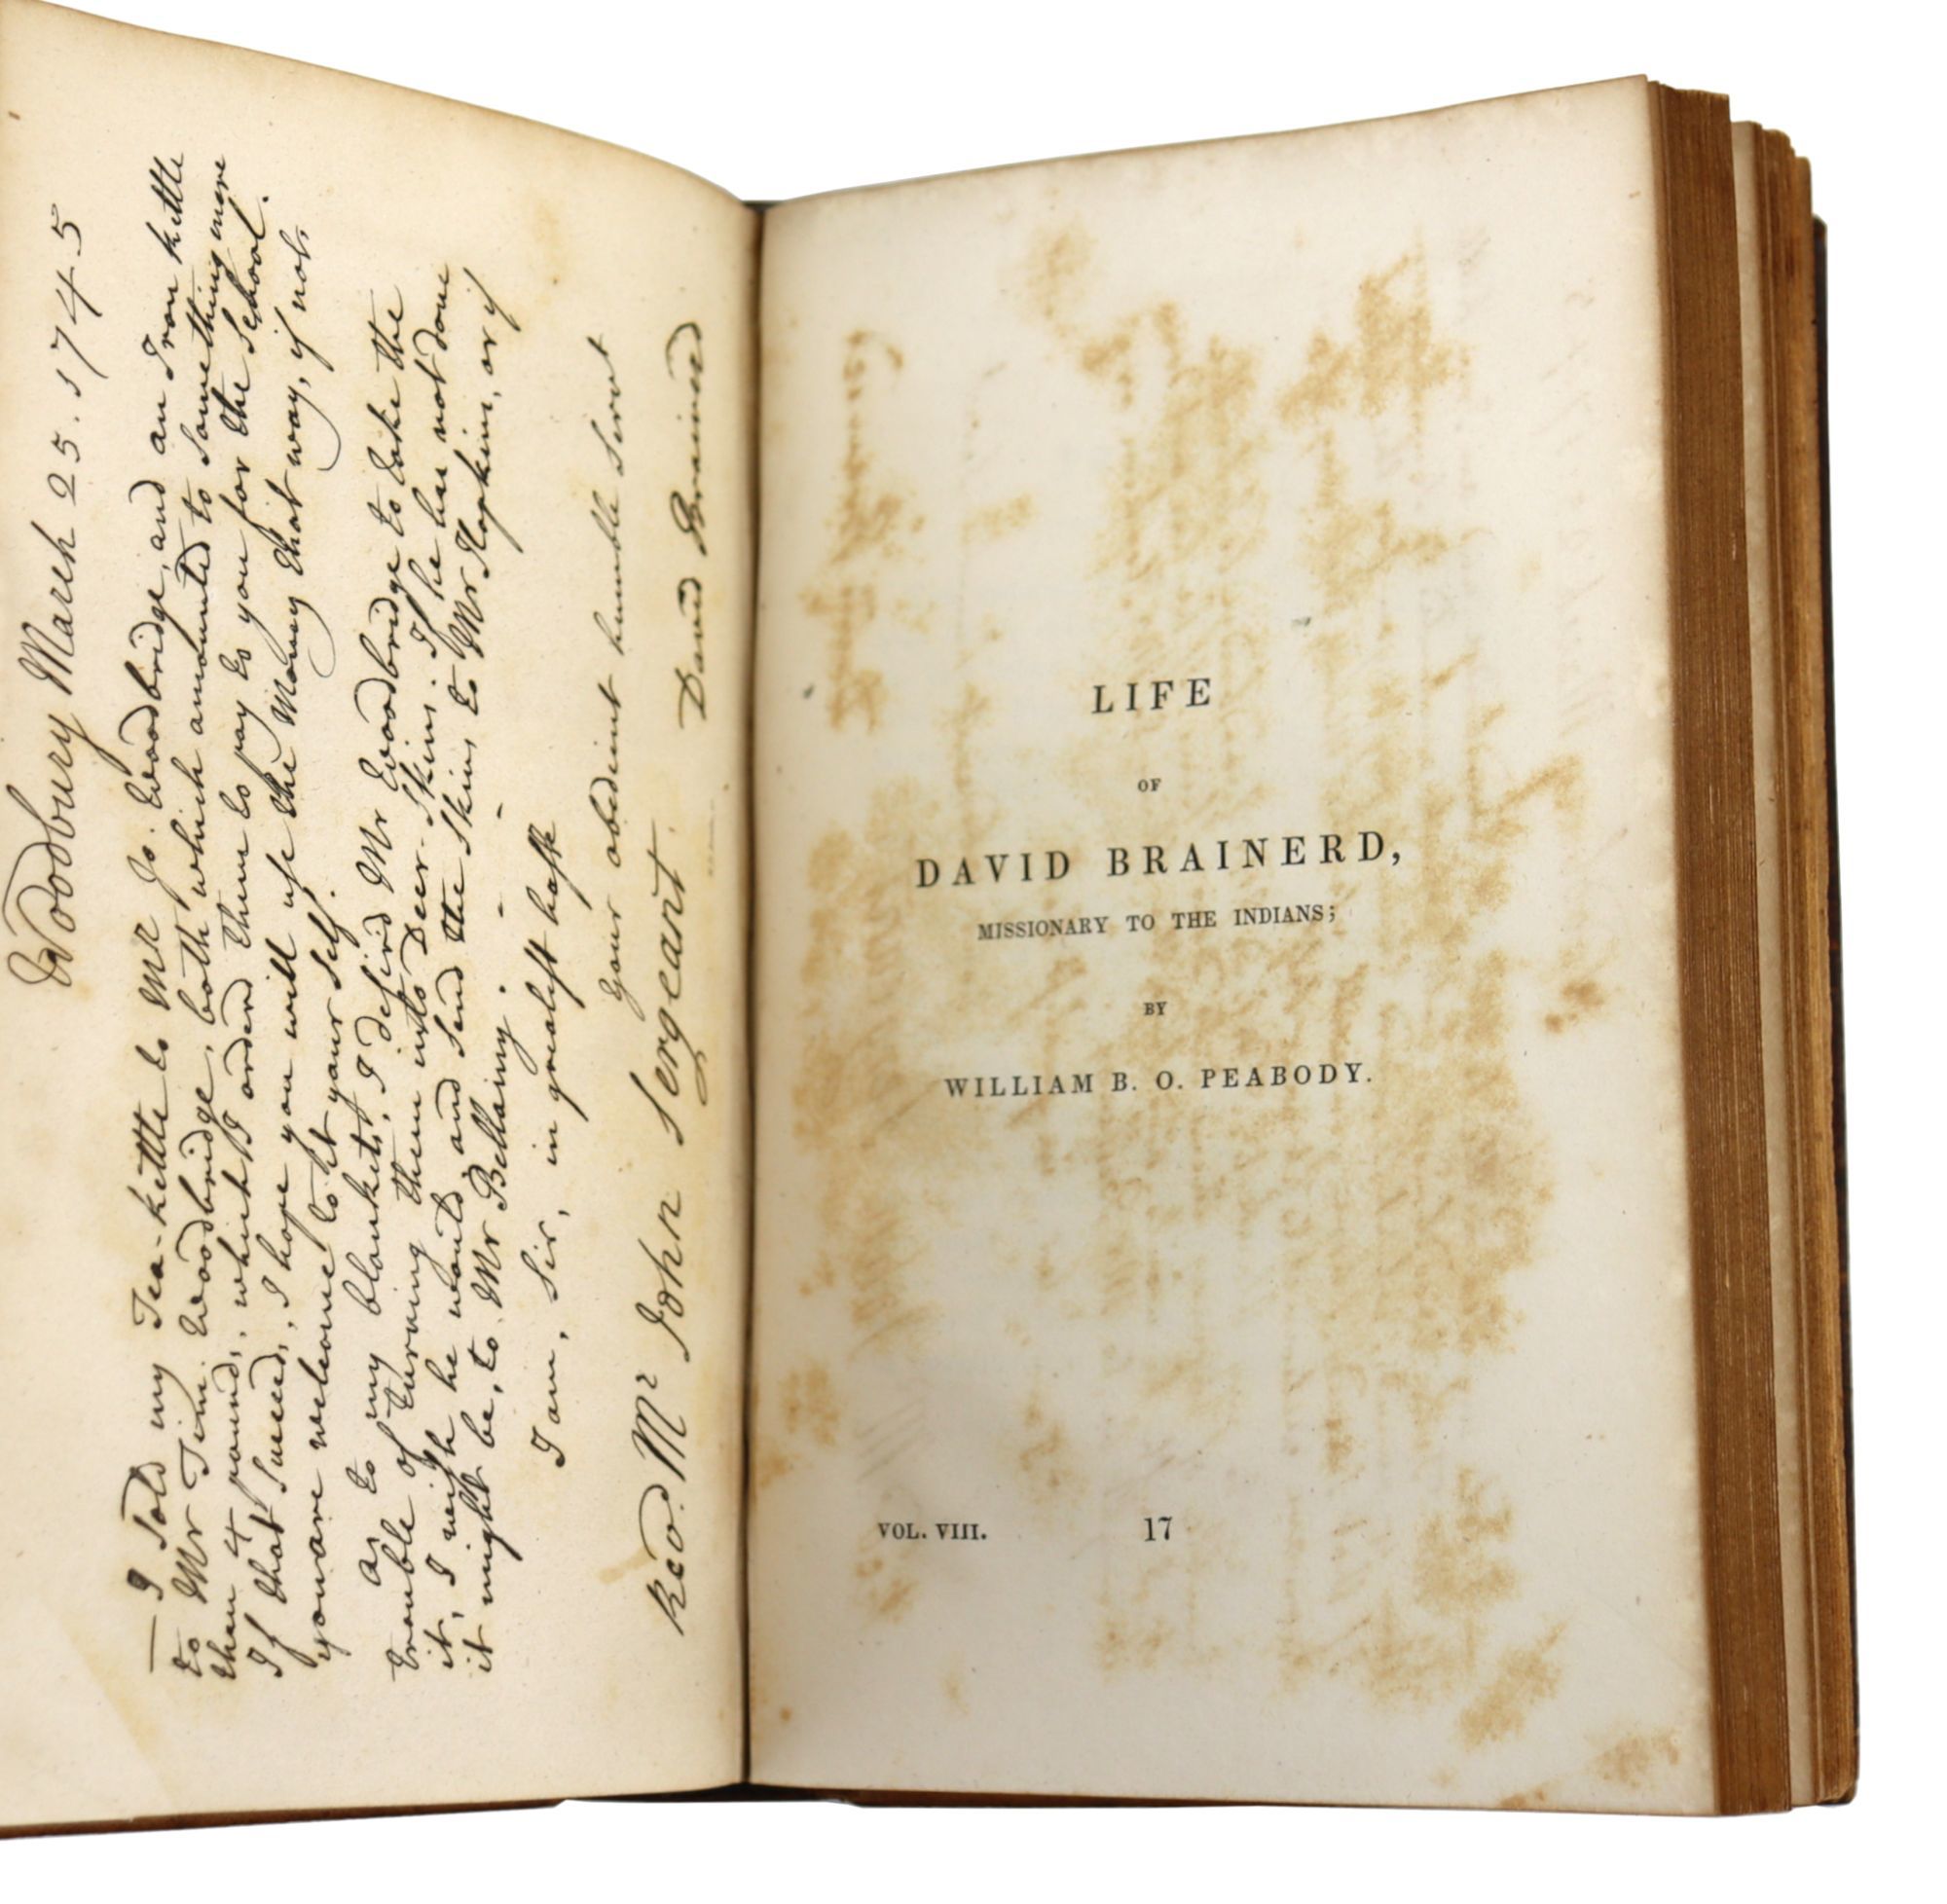 Woodbury March 25. 1745
— I Sold my Tea-kettle to Mr Jo. Woodbridge, and an Iron kettle
to Mr Tim. Woodbridge, both which amounted to Something more
than 4 pound, which I orderd them to pay to you for the School.
If that Succeed, I hope you will use the Money that way, if not,
you are welcome to it your Self.
As to my blankets, I desired Mr Woodbridge to take the
trouble of turning them into Deer-Skins, If he has not done
it, I wish he would, and Send the Skins to Mr Hopkins, or if
it might be, to Mr Bellamy. - -
I am, Sir, in greatest haste
Your obedient humble Servt
David Brainerd
Revd. Mr John Sergeant.
LIFE
OF
DAVID BRAINERD,
MISSIONARY TO THE INDIANS;
BY
WILLIAM B. O. PEABODY.
VOL. VIII. 17